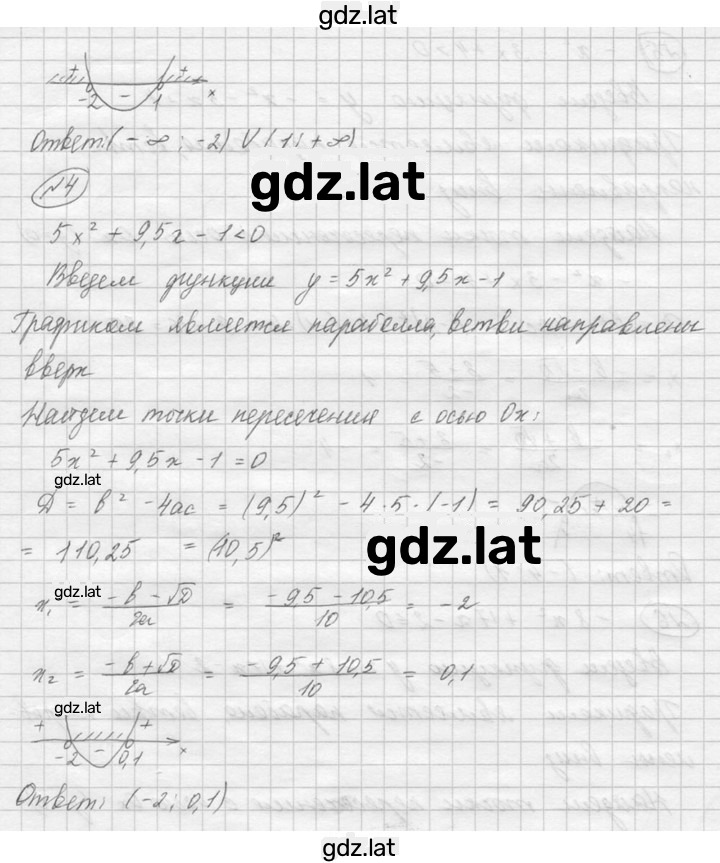 gdz.lat
+ +
-2 - 1 x
Ответ: (-∞; -2) ∪ (1; +∞)
gdz.lat
№4
5x² + 9,5x - 1 < 0
Введем функции y = 5x² + 9,5x - 1
Графиком является парабола, ветви направлены
вверх
Найдем точки пересечения с осью Ox:
5x² + 9,5x - 1 = 0
gdz.lat
D = b² - 4ac = (9,5)² - 4·5·(-1) = 90,25 + 20 =
= 110,25 = (10,5)²
gdz.lat
gdz.lat
x₁ = (-b - √D)/2a = (-9,5 - 10,5)/10 = -2
x₂ = (-b + √D)/2a = (-9,5 + 10,5)/10 = 0,1
gdz.lat
+ +
-2 - 0,1 x
Ответ: (-2; 0,1)
gdz.lat